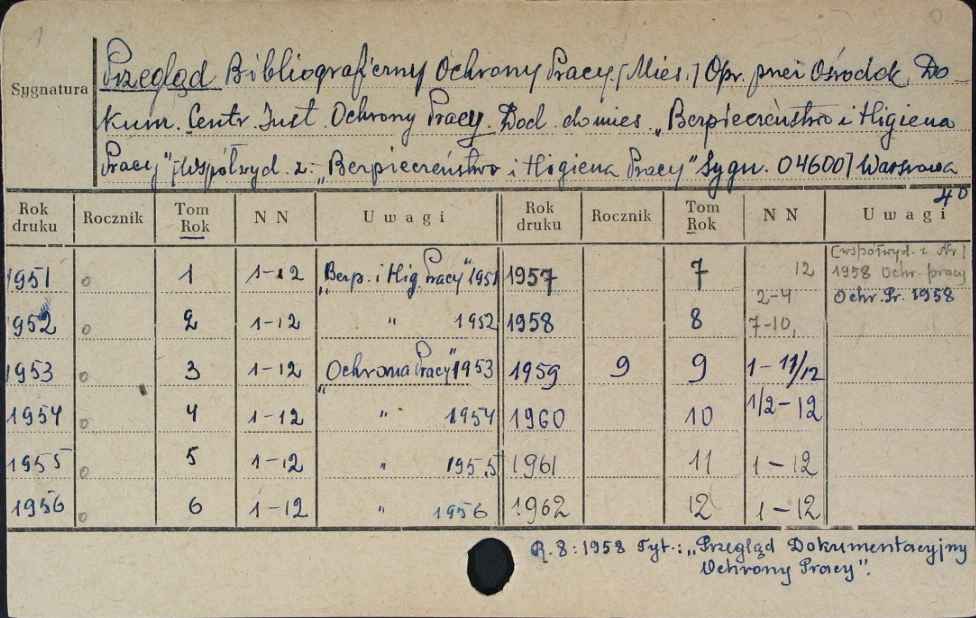 1
Sygnatura
Przegląd Bibliograficzny Ochrony Pracy. [Mies.] Opr. przez Ośrodek Do-
kum. Centr. Inst. Ochrony Pracy. Dod. do mies. „Bezpieczeństwo i Higiena
Pracy" [Współwyd. z: „Bezpieczeństwo i Higiena Pracy" Sygn. 04600] Warszawa
4º
Rok druku Rocznik Tom Rok N N Uwagi Rok druku Rocznik Tom Rok N N Uwagi
1951 0 1 1-12 „Bezp. i Hig. Pracy" 1951 1957 7 12 [współwyd. z Nr]
1958 Ochr. pracy
Ochr. Pr. 1958
1952 0 2 1-12 " 1952 1958 8 2-4
7-10,
1953 0 3 1-12 „Ochrona Pracy" 1953 1959 9 9 1-11/12
1954 0 4 1-12 " 1954 1960 10 1/2-12
1955 0 5 1-12 " 1955 1961 11 1-12
1956 0 6 1-12 " 1956 1962 12 1-12
R. 8: 1958 Tyt.: „Przegląd Dokumentacyjny
Ochrony Pracy".